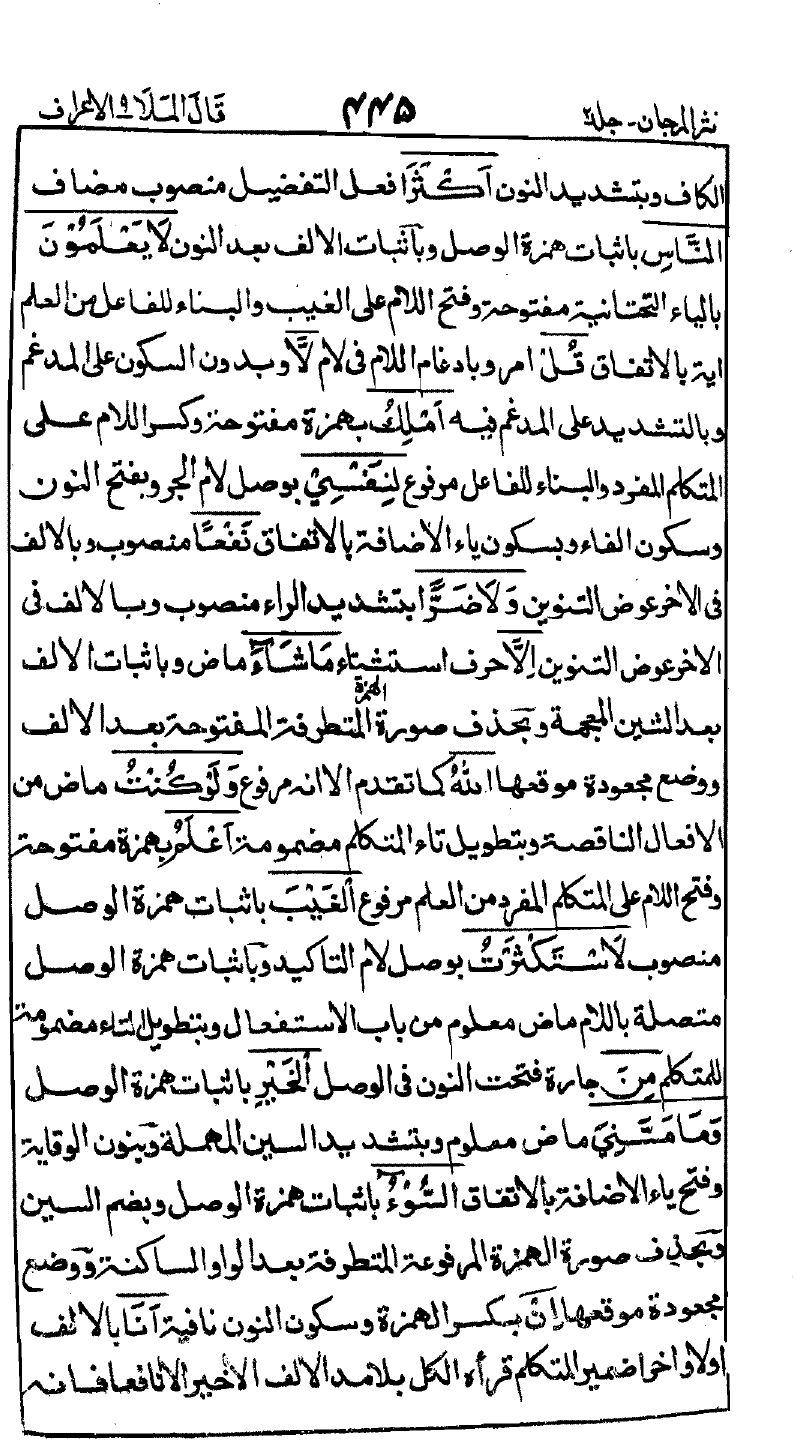 نثر المرجان - جلد۲ ۴۴۵ قَالَ الْمَلَاُ ۹ الاعراف
الكاف وبتشديد النون اَكْثَرَ افعل التفضيل منصوب مضاف
النَّاسِ باثبات همزة الوصل وباثبات الالف بعد النون لَا يَعْلَمُوْنَ
بالياء التحتانية مفتوحة وفتح اللام على الغيب والبناء للفاعل من العلم
اية بالاتفاق قُلْ امر وبادغام اللام فى لام لَّا وبدون السكون على المدغم
وبالتشديد على المدغم فيه اَمْلِكُ بهمزة مفتوحة وكسر اللام على
المتكلم المفرد والبناء للفاعل مرفوع لِنَفْسِيْ بوصل لام الجر وبفتح النون
وسكون الفاء وبسكون ياء الاضافة بالاتفاق نَفْعًا منصوب وبالالف
فى الاخر عوض التنوين وَلَا ضَرًّا بتشديد الراء منصوب وبالالف فى
الاخر عوض التنوين اِلَّا حرف استثناء مَا شَآءَ ماض وباثبات الالف
بعد الشين المعجمة وبحذف صورة الهمزة المتطرفة المفتوحة بعد الالف
ووضع مجعودة موقعها اللهُ كما تقدم الا انه مرفوع وَلَوْ كُنْتُ ماض من
الافعال الناقصة وبتطويل تاء المتكلم مضمومة اَعْلَمُ بهمزة مفتوحة
وفتح اللام على المتكلم المفرد من العلم مرفوع الْغَيْبَ باثبات همزة الوصل
منصوب لَاسْتَكْثَرْتُ بوصل لام التاكيد وباثبات همزة الوصل
متصلة باللام ماض معلوم من باب الاستفعال وبتطويل التاء مضمومة
للمتكلم مِنَ جارة فتحت النون فى الوصل الْخَيْرِ باثبات همزة الوصل
وَمَا مَسَّنِيَ ماض معلوم وبتشديد السين المهملة وبنون الوقاية
وفتح ياء الاضافة بالاتفاق السُّوْٓءُ باثبات همزة الوصل وبضم السين
وبحذف صورة الهمزة المرفوعة المتطرفة بعد الواو الساكنة ووضع
مجعودة موقعها اِنْ بكسر الهمزة وسكون النون نافية اَنَا بالالف
اولا واخرا ضمير المتكلم قرأه الكل بلا مد الالف الاخير الا نافعا فانه